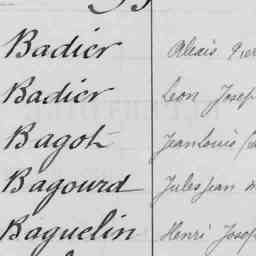 Badier Alexis Pier
Badier Leon Josep
Bagot Jean Louis
Bagourd Jules Jean M
Baguelin Henri Josep